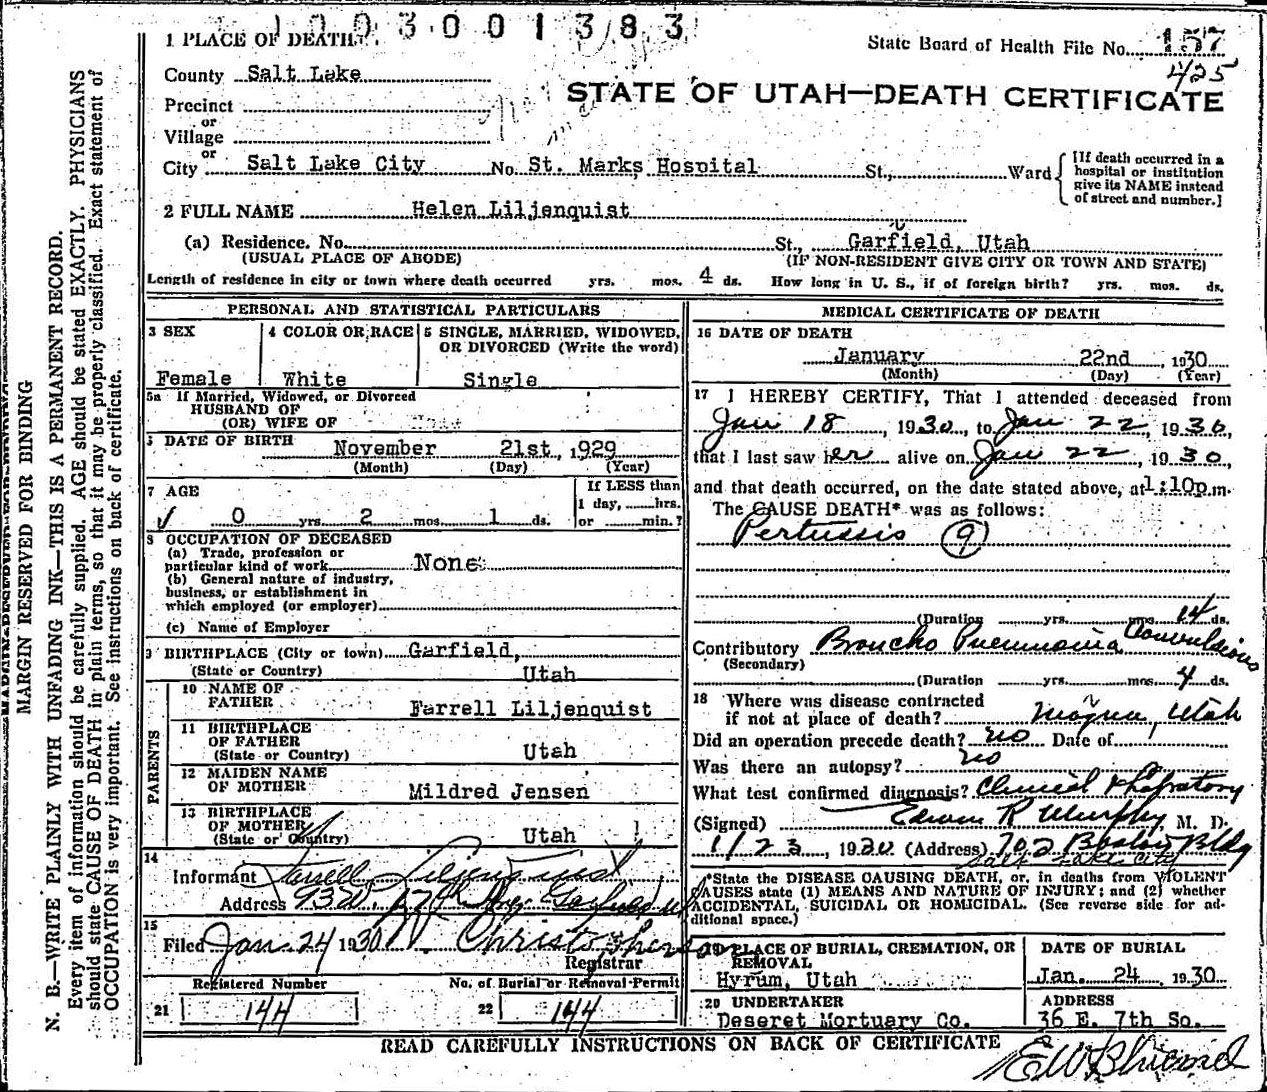 1003001383
1 PLACE OF DEATH
State Board of Health File No. 157
425
County Salt Lake
STATE OF UTAH—DEATH CERTIFICATE
Precinct
or
Village
or
City Salt Lake City No. St. Marks Hospital St., Ward
[If death occurred in a hospital or institution give its NAME instead of street and number.]
2 FULL NAME Helen Liljenquist
(a) Residence. No. St., Garfield, Utah
(USUAL PLACE OF ABODE) (IF NON-RESIDENT GIVE CITY OR TOWN AND STATE)
Length of residence in city or town where death occurred yrs. mos. 4 ds. How long in U. S., if of foreign birth? yrs. mos. ds.
PERSONAL AND STATISTICAL PARTICULARS
3 SEX
Female
4 COLOR OR RACE
White
5 SINGLE, MARRIED, WIDOWED,
OR DIVORCED (Write the word)
Single
5a If Married, Widowed, or Divorced
HUSBAND OF
(OR) WIFE OF
6 DATE OF BIRTH
November 21st, 1929
(Month) (Day) (Year)
7 AGE
0 yrs. 2 mos. 1 ds.
If LESS than
1 day, hrs.
or min.?
8 OCCUPATION OF DECEASED
(a) Trade, profession or
particular kind of work None
(b) General nature of industry,
business, or establishment in
which employed (or employer)
(c) Name of Employer
9 BIRTHPLACE (City or town) Garfield,
(State or Country) Utah
PARENTS
10 NAME OF
FATHER Farrell Liljenquist
11 BIRTHPLACE
OF FATHER
(State or Country) Utah
12 MAIDEN NAME
OF MOTHER Mildred Jensen
13 BIRTHPLACE
OF MOTHER
(State or Country) Utah
14
Informant Farrell Liljenquist
Address
15
Filed Jan. 24 1930
Registrar
Registered Number
21 144
No. of Burial or Removal Permit
22 144
MEDICAL CERTIFICATE OF DEATH
16 DATE OF DEATH
January 22nd, 1930
(Month) (Day) (Year)
17 I HEREBY CERTIFY, That I attended deceased from
Jan 18, 1930, to Jan 22, 1930,
that I last saw her alive on Jan 22, 1930,
and that death occurred, on the date stated above, at 1:10p.m.
The CAUSE DEATH* was as follows:
Pertussis 9
(Duration yrs. mos. 14 ds.
Contributory Broncho Pneumonia Convulsions
(Secondary)
(Duration yrs. mos. 4 ds.
18 Where was disease contracted
if not at place of death? Magna, Utah
Did an operation precede death? no Date of
Was there an autopsy? no
What test confirmed diagnosis? Clinical &
(Signed) Edwin R Murphy, M. D.
1/23, 1930 (Address) 702 Boston Bldg
Salt Lake City
*State the DISEASE CAUSING DEATH, or, in deaths from VIOLENT
CAUSES state (1) MEANS AND NATURE OF INJURY; and (2) whether
ACCIDENTAL, SUICIDAL OR HOMICIDAL. (See reverse side for ad-
ditional space.)
19 PLACE OF BURIAL, CREMATION, OR
REMOVAL
Hyrum, Utah
DATE OF BURIAL
Jan. 24, 1930
20 UNDERTAKER
Deseret Mortuary Co.
ADDRESS
36 E. 7th So.
READ CAREFULLY INSTRUCTIONS ON BACK OF CERTIFICATE
MARGIN RESERVED FOR BINDING
N. B.—WRITE PLAINLY WITH UNFADING INK—THIS IS A PERMANENT RECORD.
Every item of information should be carefully supplied. AGE should be stated EXACTLY. PHYSICIANS
should state CAUSE OF DEATH in plain terms, so that it may be properly classified. Exact statement of
OCCUPATION is very important. See instructions on back of certificate.